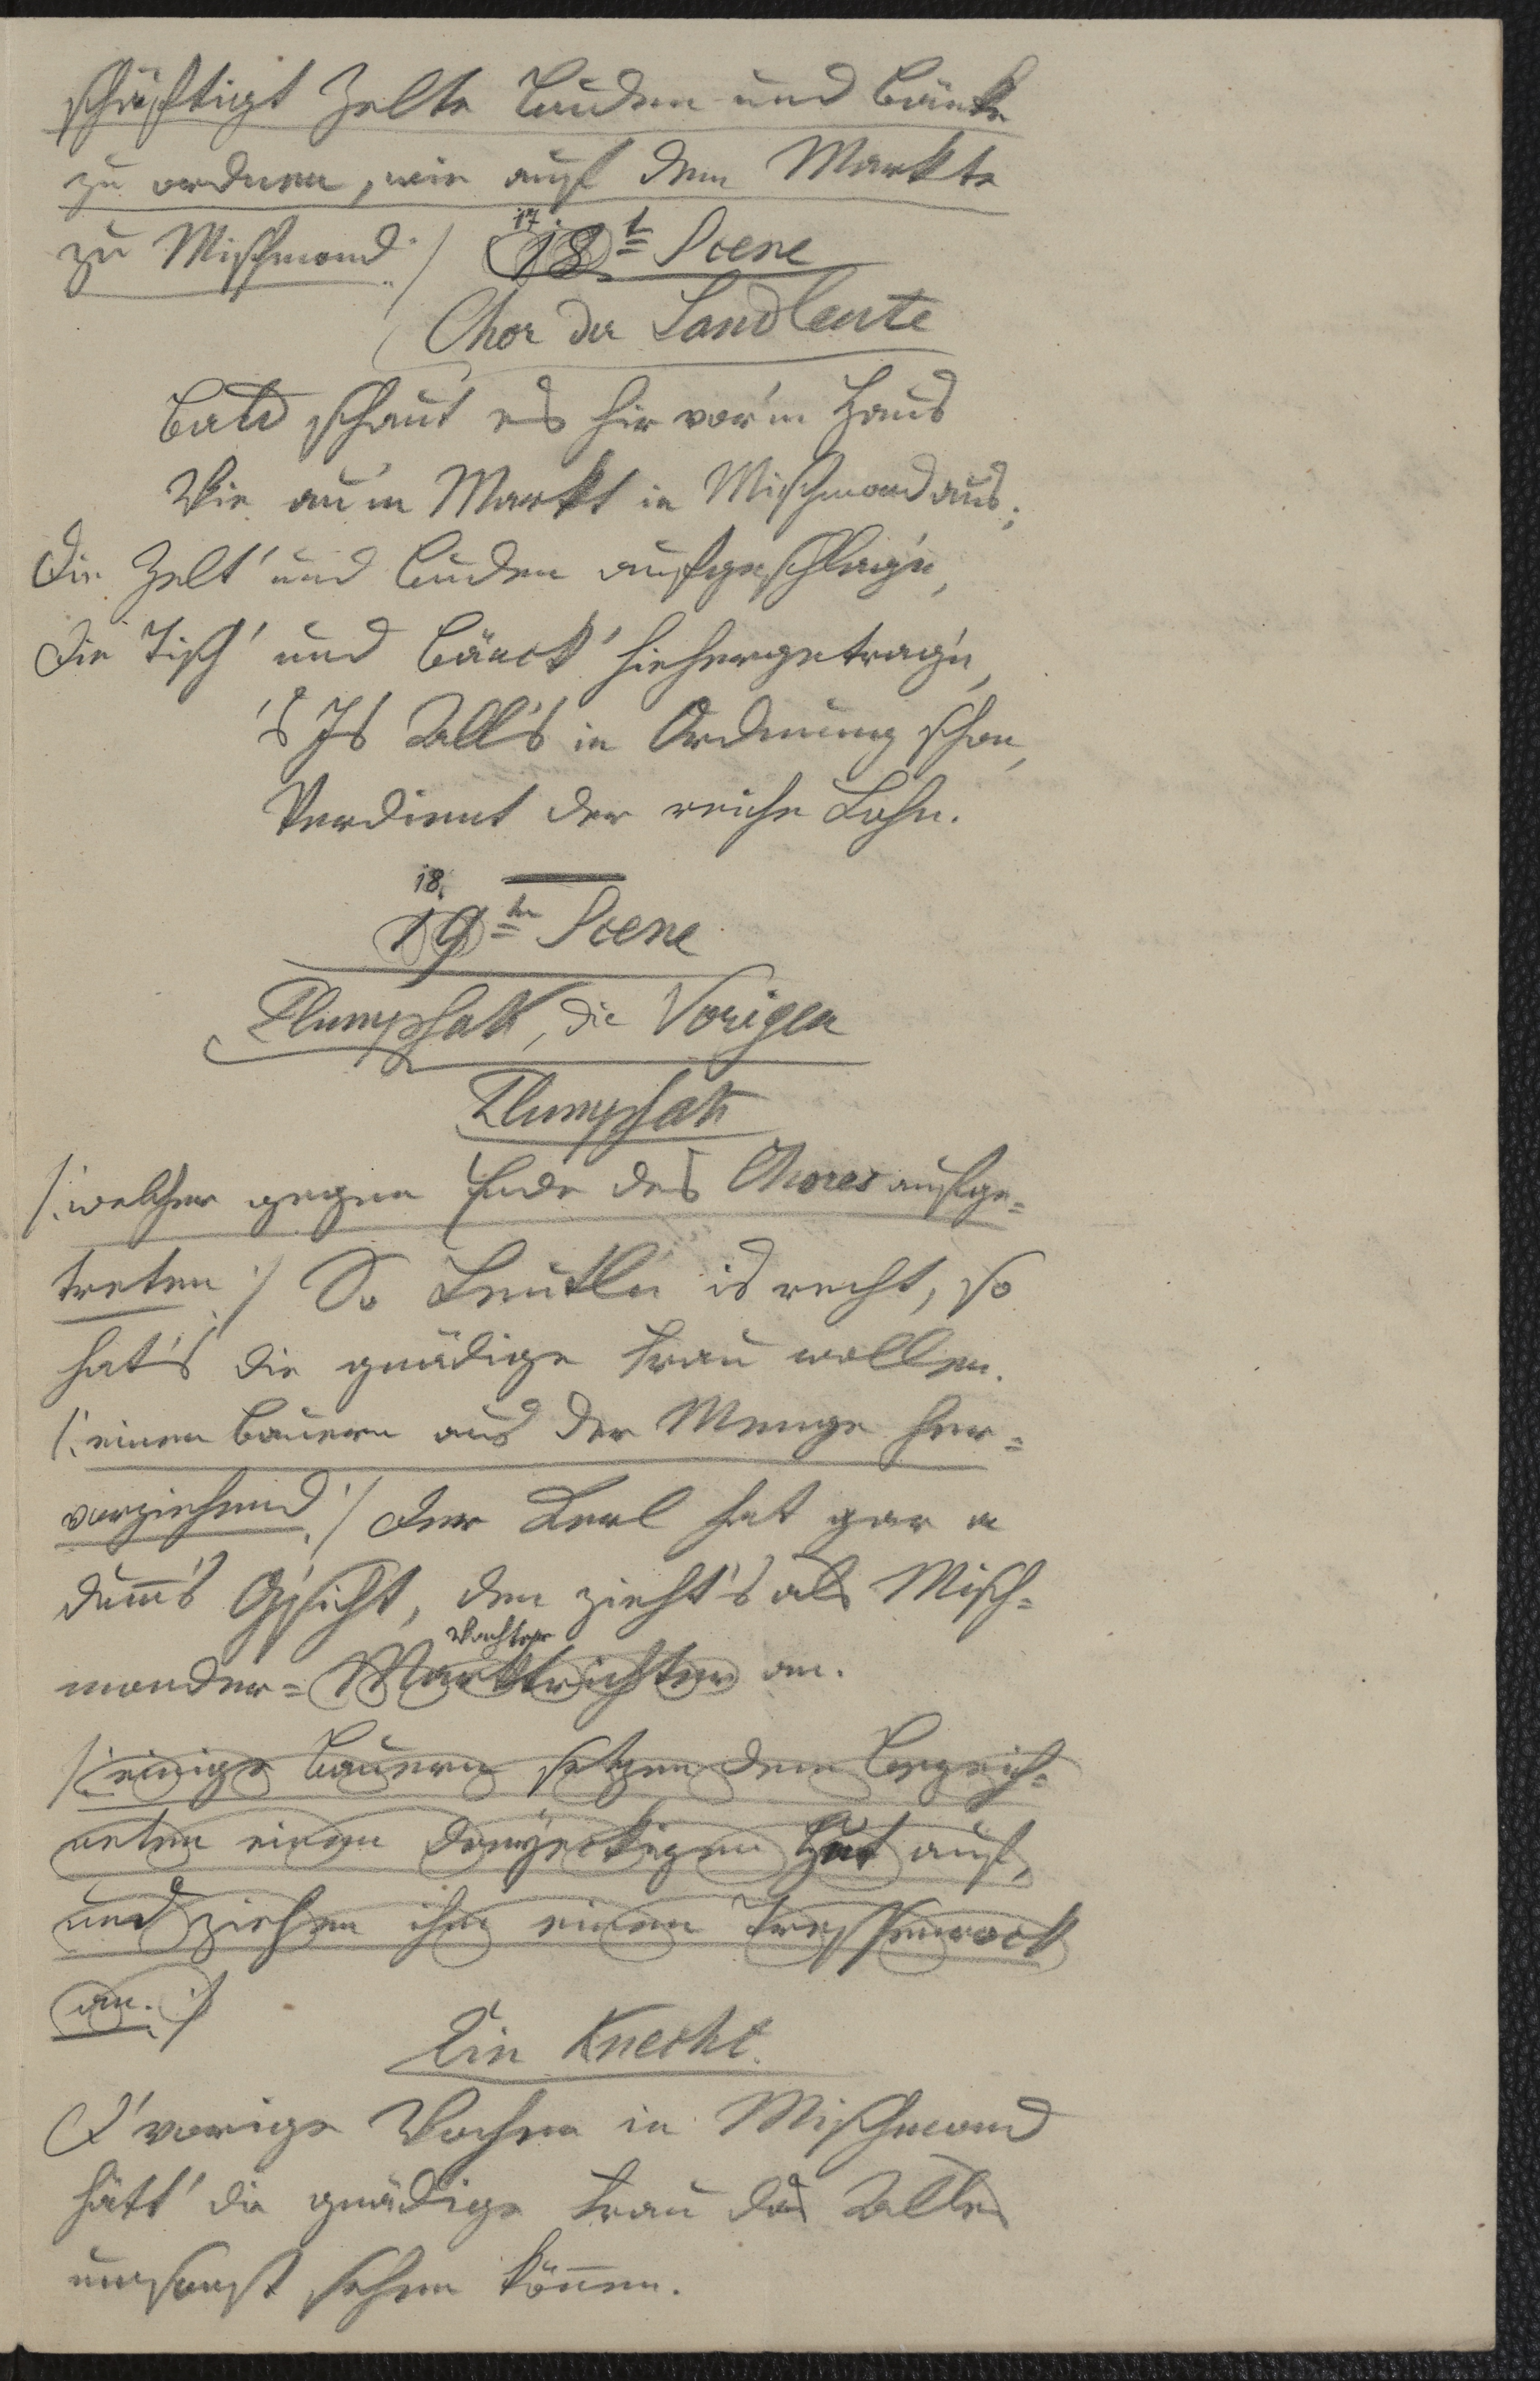 schäftigt Zelte Buden und Bänke
zu ordnen, wie auf dem Markte
zu Mischmond :/ 17. 18t Scene
Chor der Landleute
Bald schaut es hir vor'm Haus
Wie au'm Markt in Mischmond aus;
Die Zelt' und Buden aufgeschlag'n,
Die Tisch' und Bänck' hiehergetrag'n,
's Is All's in Ordnung schon,
Verdient der reiche Lohn.
18.
19te Scene
Plumpsack, die Vorigen
Plumpsack
/: welcher gegen Ende des Chores aufge=
treten :/ So Leutln is recht, so
hat's die gnädige Frau wollen.
/: einen Bauern aus der Menge her=
vorziehend :/ Der Kerl hat gar a
dum̅'s G'sicht, den zieht's als Misch=
Wachter
monder=Marktrichter an.
/: einige Bauern setzen dem Bezeich=
neten einen dreyeckigen Hut auf,
und ziehen ihm einen Tressenrock
an. :/
Ein Knecht.
D' vorige Wochen in Mischmond
hätt' die gnädige Frau das Alles
umsonst sehen kön̅en.